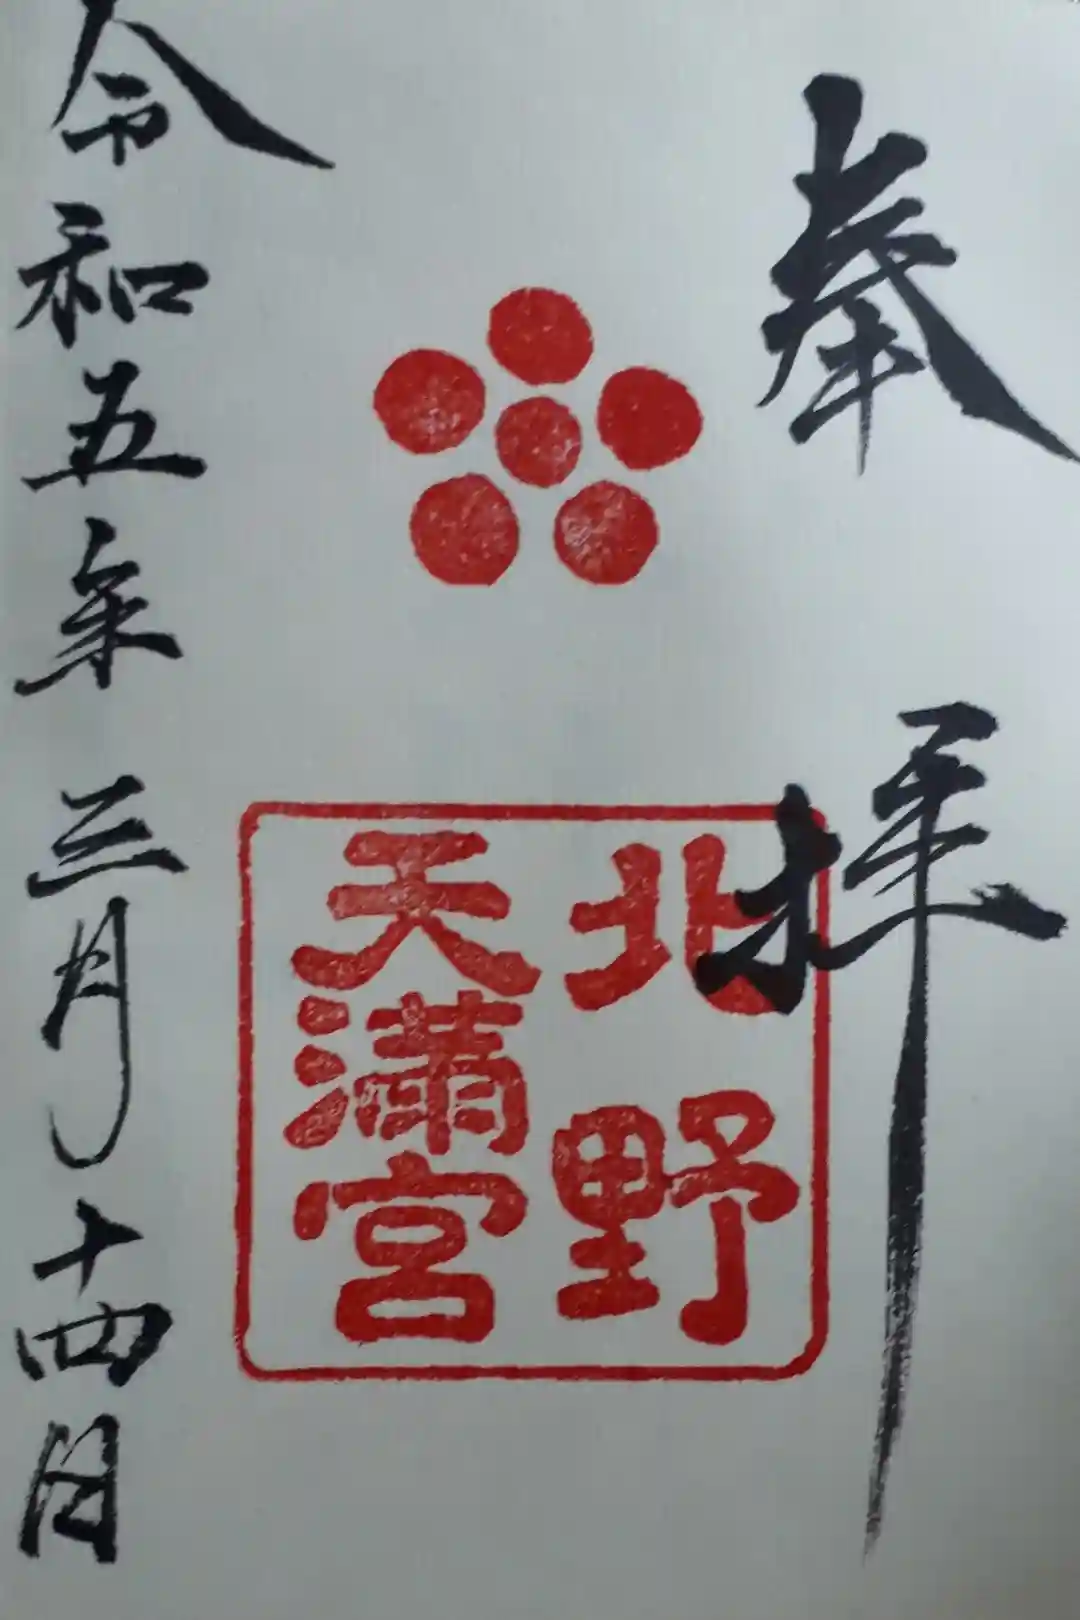 奉拝
北野
天満宮
令和五年三月十四日